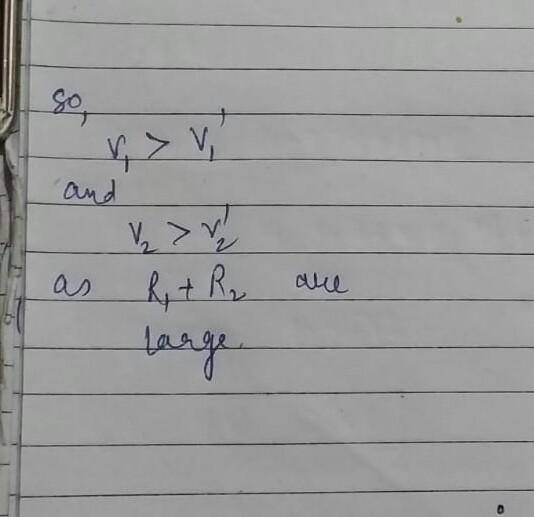 so,
V₁ > V₁'
and
V₂ > V₂'
as R₁ + R₂ are
large.